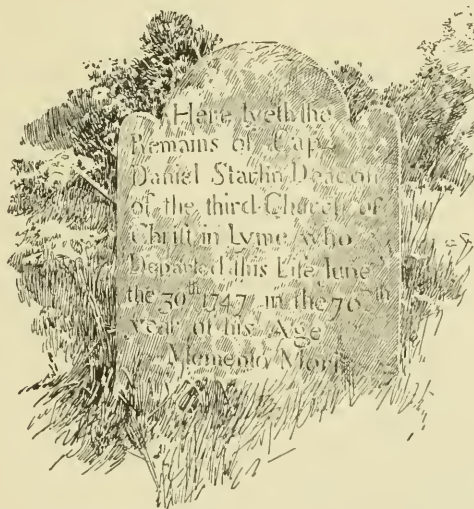 Here lyeth the
Remains of Cap
Daniel Starlin Deacon
of the third Church of
Christ in Lyme, who
Departed This Life June
the 30th 1747 in the 70th
year of his Age
Memento Mori